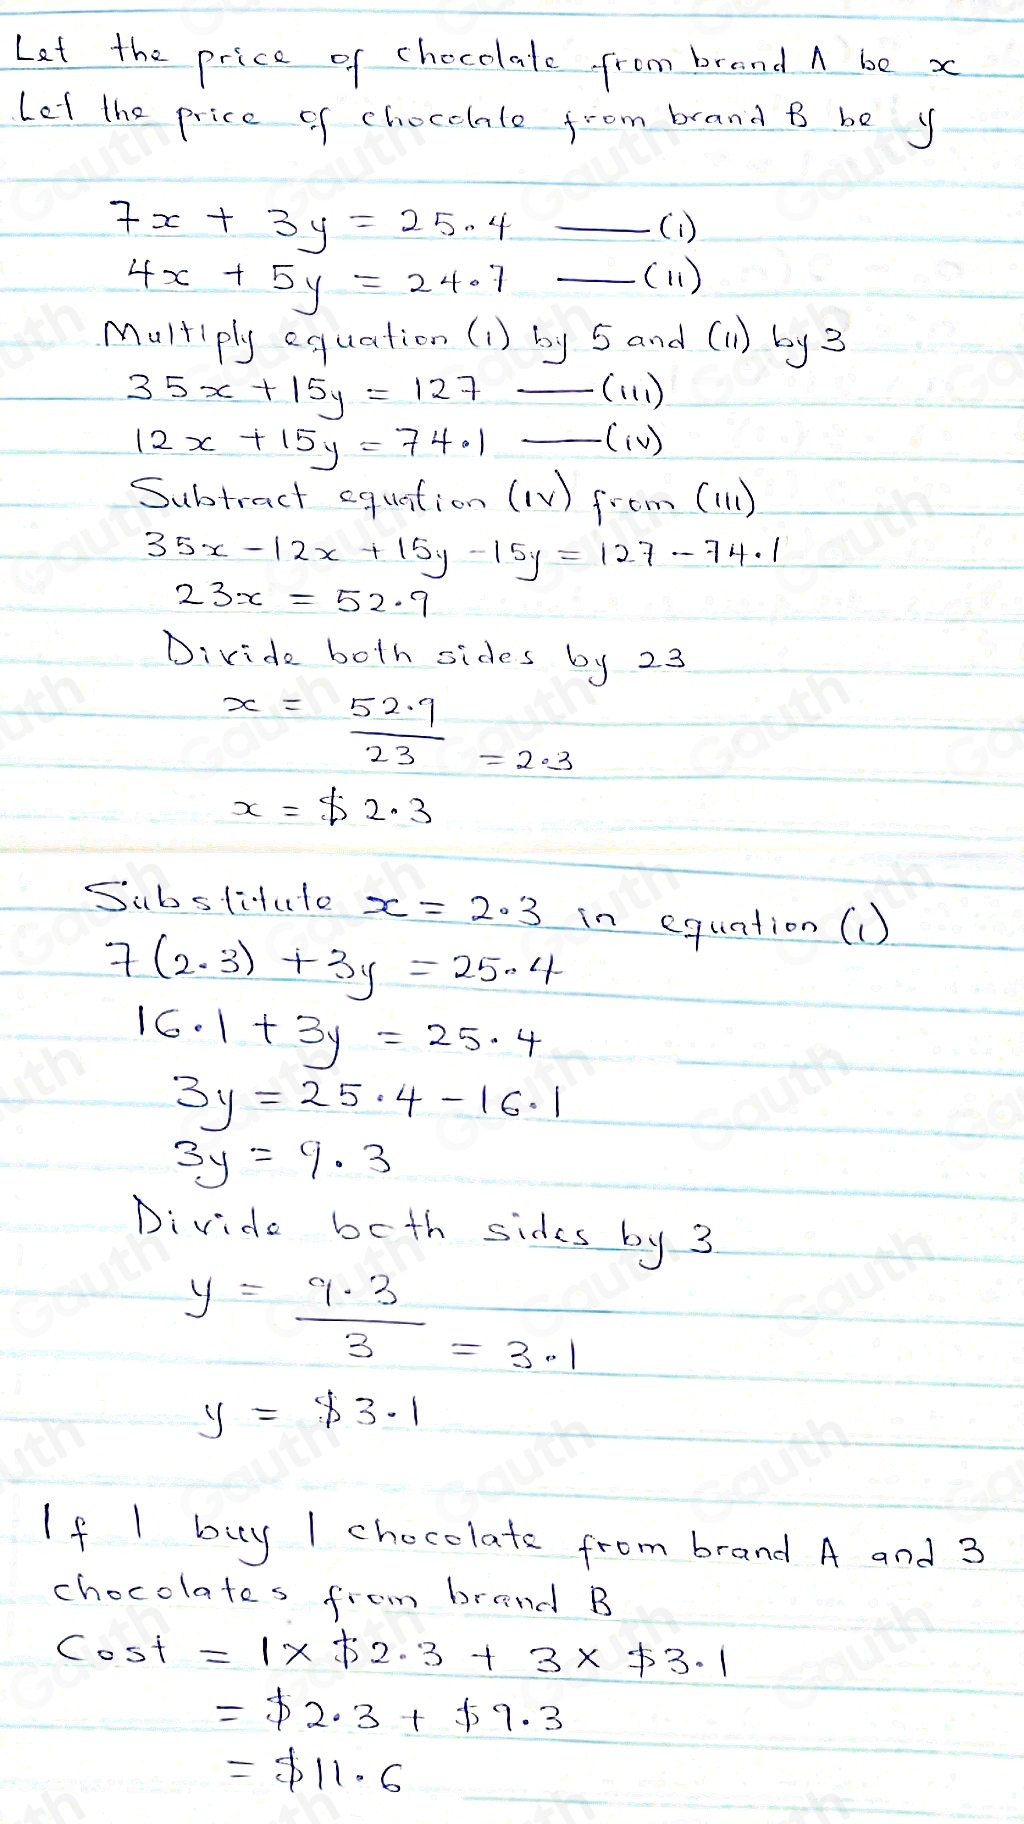 Let the price of chocolate from brand A be x
Let the price of chocolate from brand B be y
7x + 3y = 25.4 — (i)
4x + 5y = 24.7 — (ii)
Multiply equation (i) by 5 and (ii) by 3
35x + 15y = 127 — (iii)
12x + 15y = 74.1 — (iv)
Subtract equation (iv) from (iii)
35x - 12x + 15y - 15y = 127 - 74.1
23x = 52.9
Divide both sides by 23
x = 52.9
23 = 2.3
x = $2.3
Substitute x = 2.3 in equation (i)
7(2.3) + 3y = 25.4
16.1 + 3y = 25.4
3y = 25.4 - 16.1
3y = 9.3
Divide both sides by 3
y = 9.3
3 = 3.1
y = $3.1
If I buy 1 chocolate from brand A and 3
chocolates from brand B
Cost = 1 × $2.3 + 3 × $3.1
= $2.3 + $9.3
= $11.6